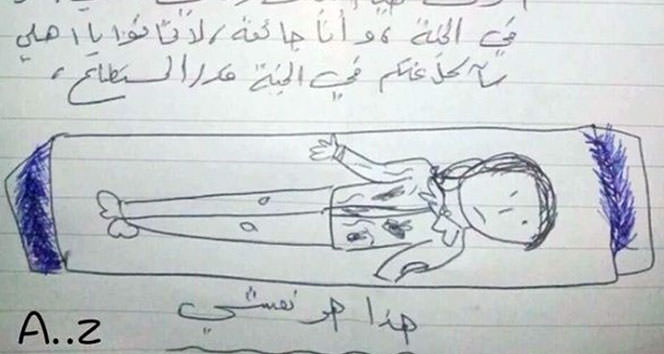 في الجنة ، و أنا جائعة ، لا تخافوا يا اهلي
سآكل عنكم في الجنة قدر المستطاع ،
هذا هو نعشي
A..z